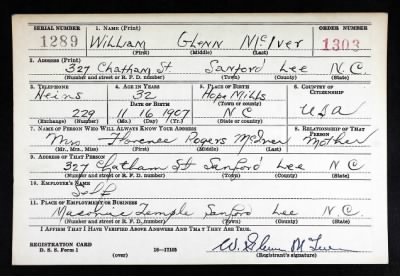 SERIAL NUMBER 1. NAME (Print) ORDER NUMBER
1289 William Glynn McIver 1303
(First) (Middle) (Last)
2. ADDRESS (Print)
327 Chatham St. Sanford Lee N.C.
(Number and street or R. F. D. number) (Town) (County) (State)
3. TELEPHONE 4. AGE IN YEARS 5. PLACE OF BIRTH 6. COUNTRY OF CITIZENSHIP
Heins 32 Hope Mills
DATE OF BIRTH (Town or county)
229 11 16 1907 NC USA
(Exchange) (Number) (Mo.) (Day) (Yr.) (State or country)
7. NAME OF PERSON WHO WILL ALWAYS KNOW YOUR ADDRESS 8. RELATIONSHIP OF THAT PERSON
Mrs Florence Rogers McIver Mother
(Mr., Mrs., Miss) (First) (Middle) (Last)
9. ADDRESS OF THAT PERSON
327 Chatham St Sanford Lee N.C.
(Number and street or R. F. D. number) (Town) (County) (State)
10. EMPLOYER'S NAME
Self
11. PLACE OF EMPLOYMENT OR BUSINESS
Masonic Temple Sanford Lee N.C.
(Number and street or R. F. D. number) (Town) (County) (State)
I AFFIRM THAT I HAVE VERIFIED ABOVE ANSWERS AND THAT THEY ARE TRUE.
REGISTRATION CARD
D. S. S. Form 1 16—17105 W. Glynn McIver
(over) (Registrant's signature)